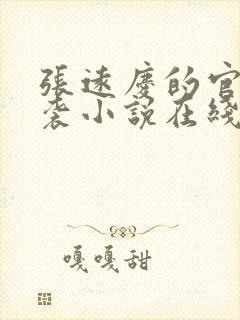 張遠慶的官
袭小說在綫
嘎嘎甜